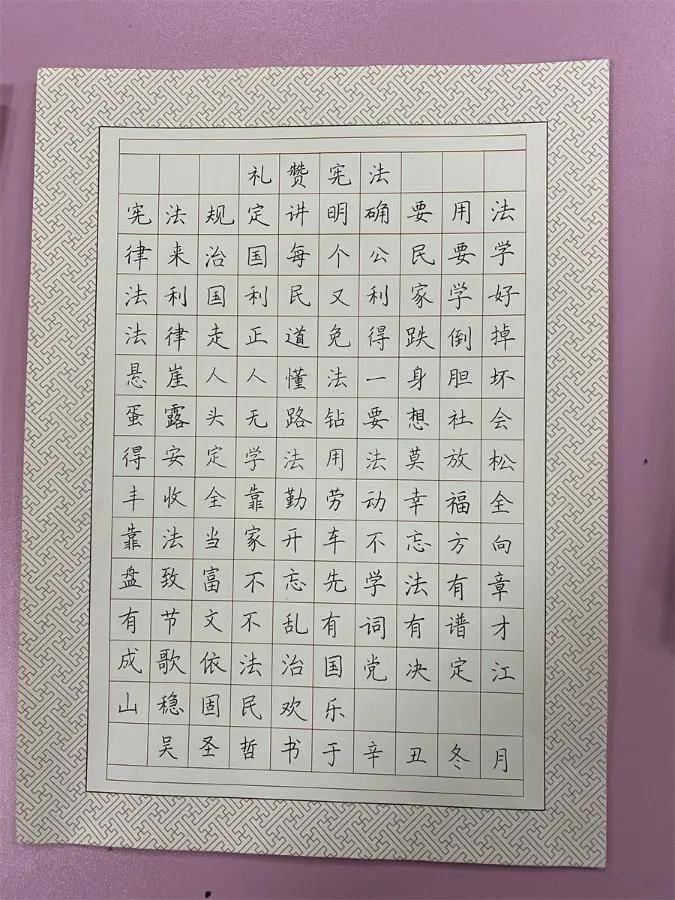 礼赞宪法
宪法规定讲明确要用法
律来治国每个公民要学
法利国利民又利家学好
法律走正道免得跌倒掉
悬崖人人懂法一身胆坏
蛋露头无路钻要想社会
得安定学法用法莫放松
丰收全靠勤劳动幸福全
靠法当家开车不忘方向
盘致富不忘先学法有章
有节文不乱有词有谱才
成歌依法治国党决定江
山稳固民欢乐
吴圣哲书于辛丑冬月